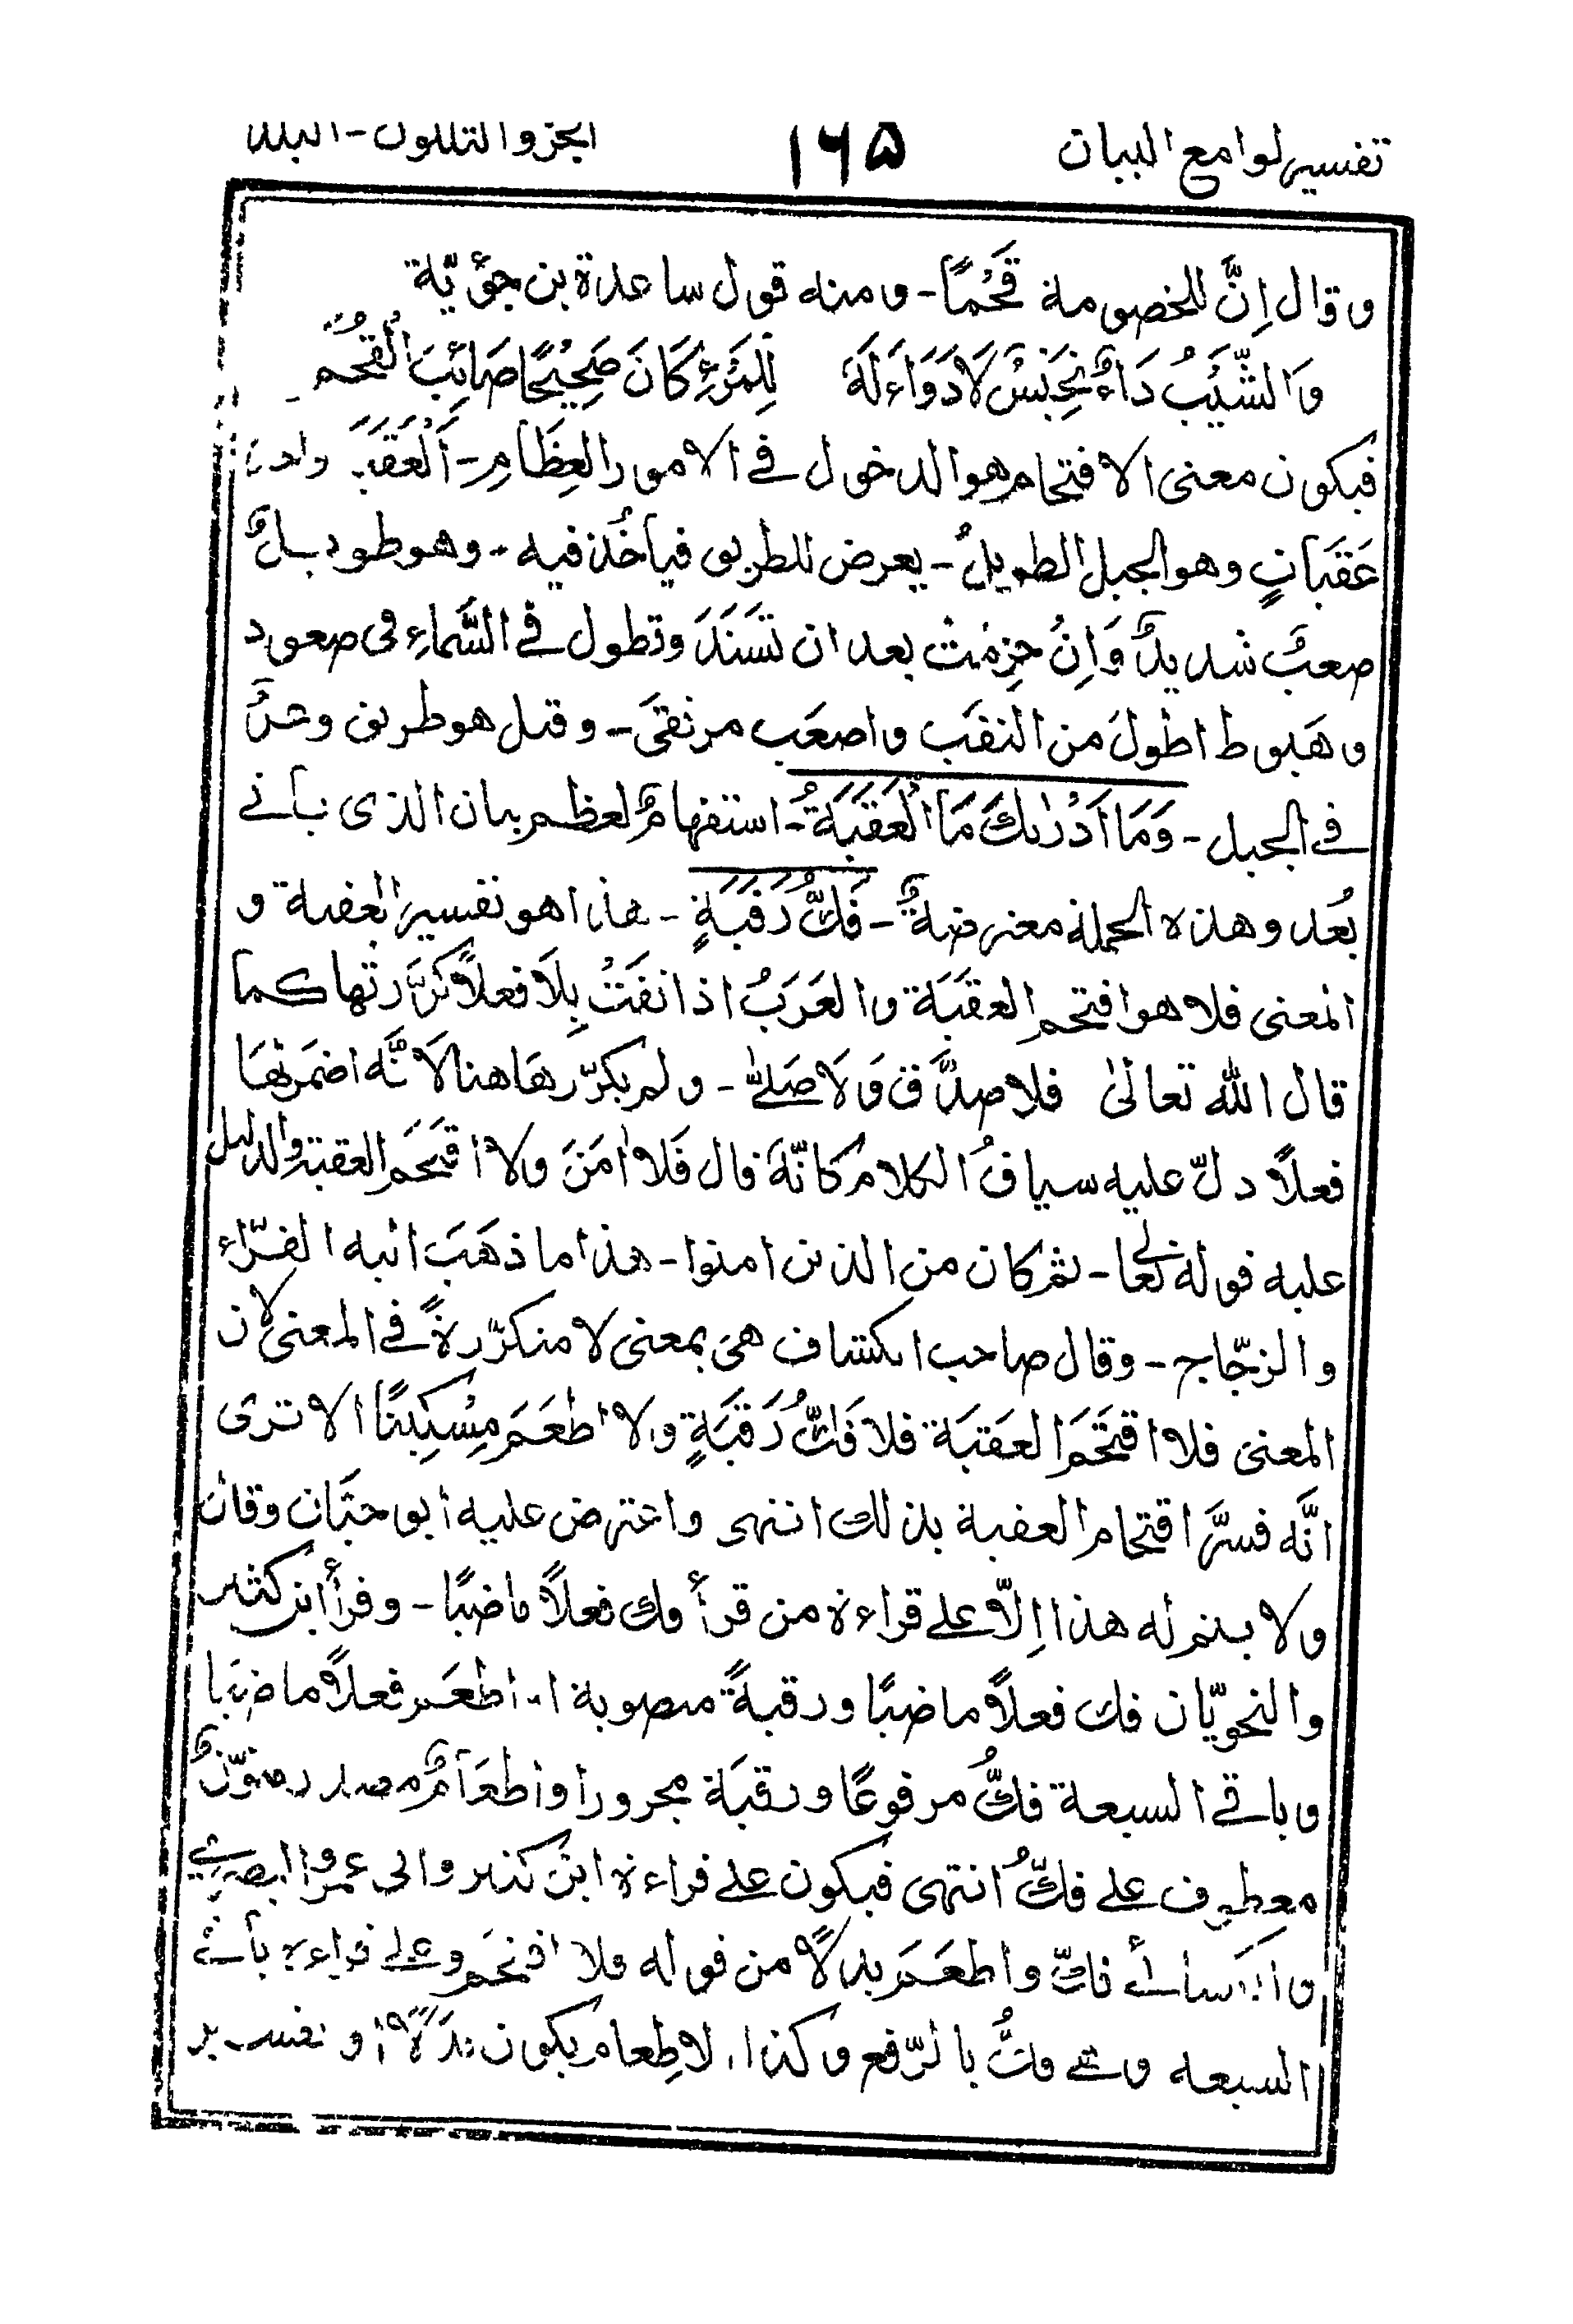 تفسير لوامع البيان ۱۶۵ الجزء الثلاثون - البلد
وقال اِنَّ للخصومة قُحَمًا - ومنه قول ساعدة بن جؤيّة
وَالشَّيْبُ دَاءٌ نَجِيْسٌ لَا دَوَاءَ لَهٗ لِلْمَرْءِ كَانَ صَحِيْحًا صَائِبَ الْقُحَمِ
فيكون معنى الاقتحام هو الدخول في الامور العِظَامِ - اَلْعَقَبَةَ واحدة
عَقَبَاتٍ وهو الجبل الطويلُ - يعرض للطريق فيأخُذ فيه - وهو طويلٌ
صعبٌ شديدٌ وَاِنْ خُرِمَتْ بعد ان تَسْنَدَ وتطول في السَّمَاءِ في صعود
وهَبوط اطولَ من النقب واصعَب مرتقىَ - وقيل هو طريق وعرٌ
في الجبل - وَمَا اَدْرٰىكَ مَا الْعَقَبَةُ - استفهامٌ لعظم بيان الذى يأتي
بُعد وهذه الجملة معترضةٌ - فَكُّ رَقَبَةٍ - هذا هو تفسير العقبة و
المعنى فلا هو اقتحم العقَبَة والعَرَبُ اذا نفَتْ بِلَا فعلاً كرَّرتها كما
قال الله تعالىٰ فلا صدَّق وَلَا صَلّٰى - ولم يكرّرها هنا لاَنَّه اضمَرتها
فعلاً دلّ عليه سياقُ الكلام كانّهٗ قال فَلا اٰمَنَ ولا اقتَحَم العقبة والدليل
عليه قوله تعالى - ثم كان من الذين امنوا - هذا ما ذهَبَ اليه الفرّاء
والزجّاج - وقال صاحب الكشاف هىَ بمعنى لا متكرّرةً في المعنى لان
المعنى فلا اقتَحَمَ العَقبَة فلا فَكَّ رَقَبَةٍ ولا اطعَمَ مِسْكِيْنًا الا ترى
انَّه فسَّر اقتحام العقبة بذلك انتهى واعترض عليه أبو حيّان وقال
ولا يتم له هذا اِلّا على قراءة من قرأ فك فعلاً ماضيًا - وقرأ ابن كثير
والنحويّان فك فعلاً ماضيًا ورقبةً منصوبة او اطعَم فعلاً ماضيًا
وباقي السبعة فكُّ مرفوعًا ورقبَة مجرورا واطعَامٌ مصدر منوّنٌ
معطوف على فكُّ انتهى فيكون على قراءة ابن كثير وابى عمرو البصري
والكسائي فكّ واطعَمَ بدلاً من قوله فلا اقتحَم وعلى قراءة باقي
السبعة فكُّ بالرّفع وكذا الاِطعام يكون بدَلاً او تفسير